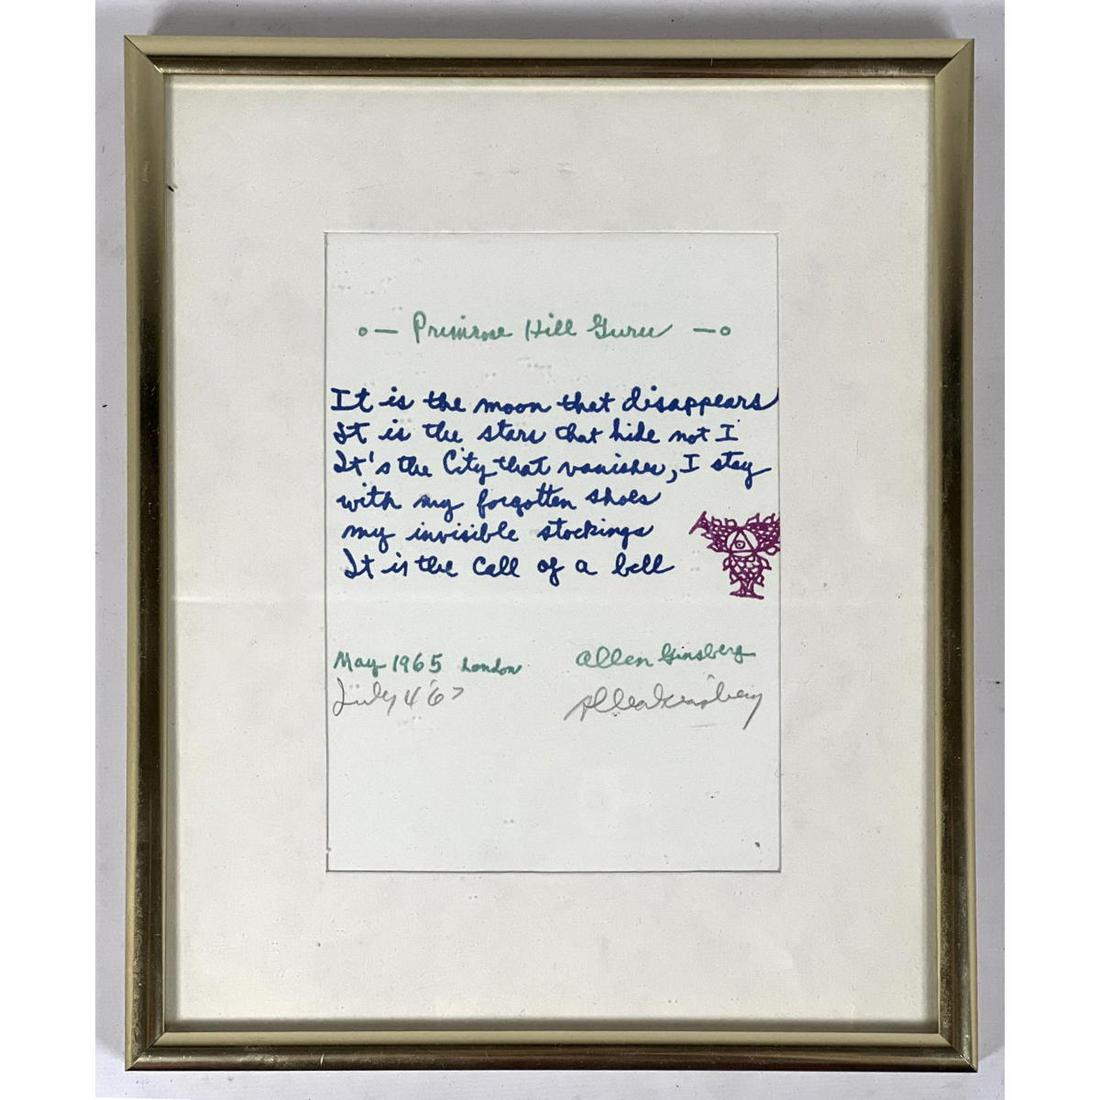 o— Primrose Hill Guru —o
It is the moon that disappears
It is the stars that hide not I
It's the City that vanishes, I stay
with my forgotten shoes
my invisible stockings
It is the call of a bell
May 1965 London Allen Ginsberg
July 4 '67 Allen Ginsberg